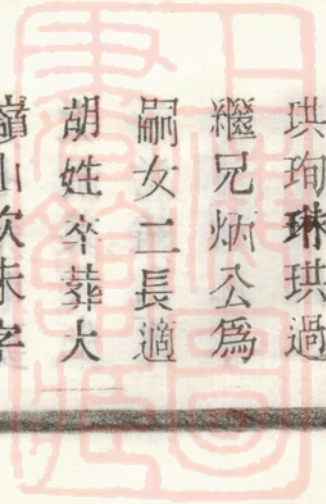 珙珣琳珙過
繼兄炳公爲
嗣女二長適
胡姓卒葬大
嶺山次未字